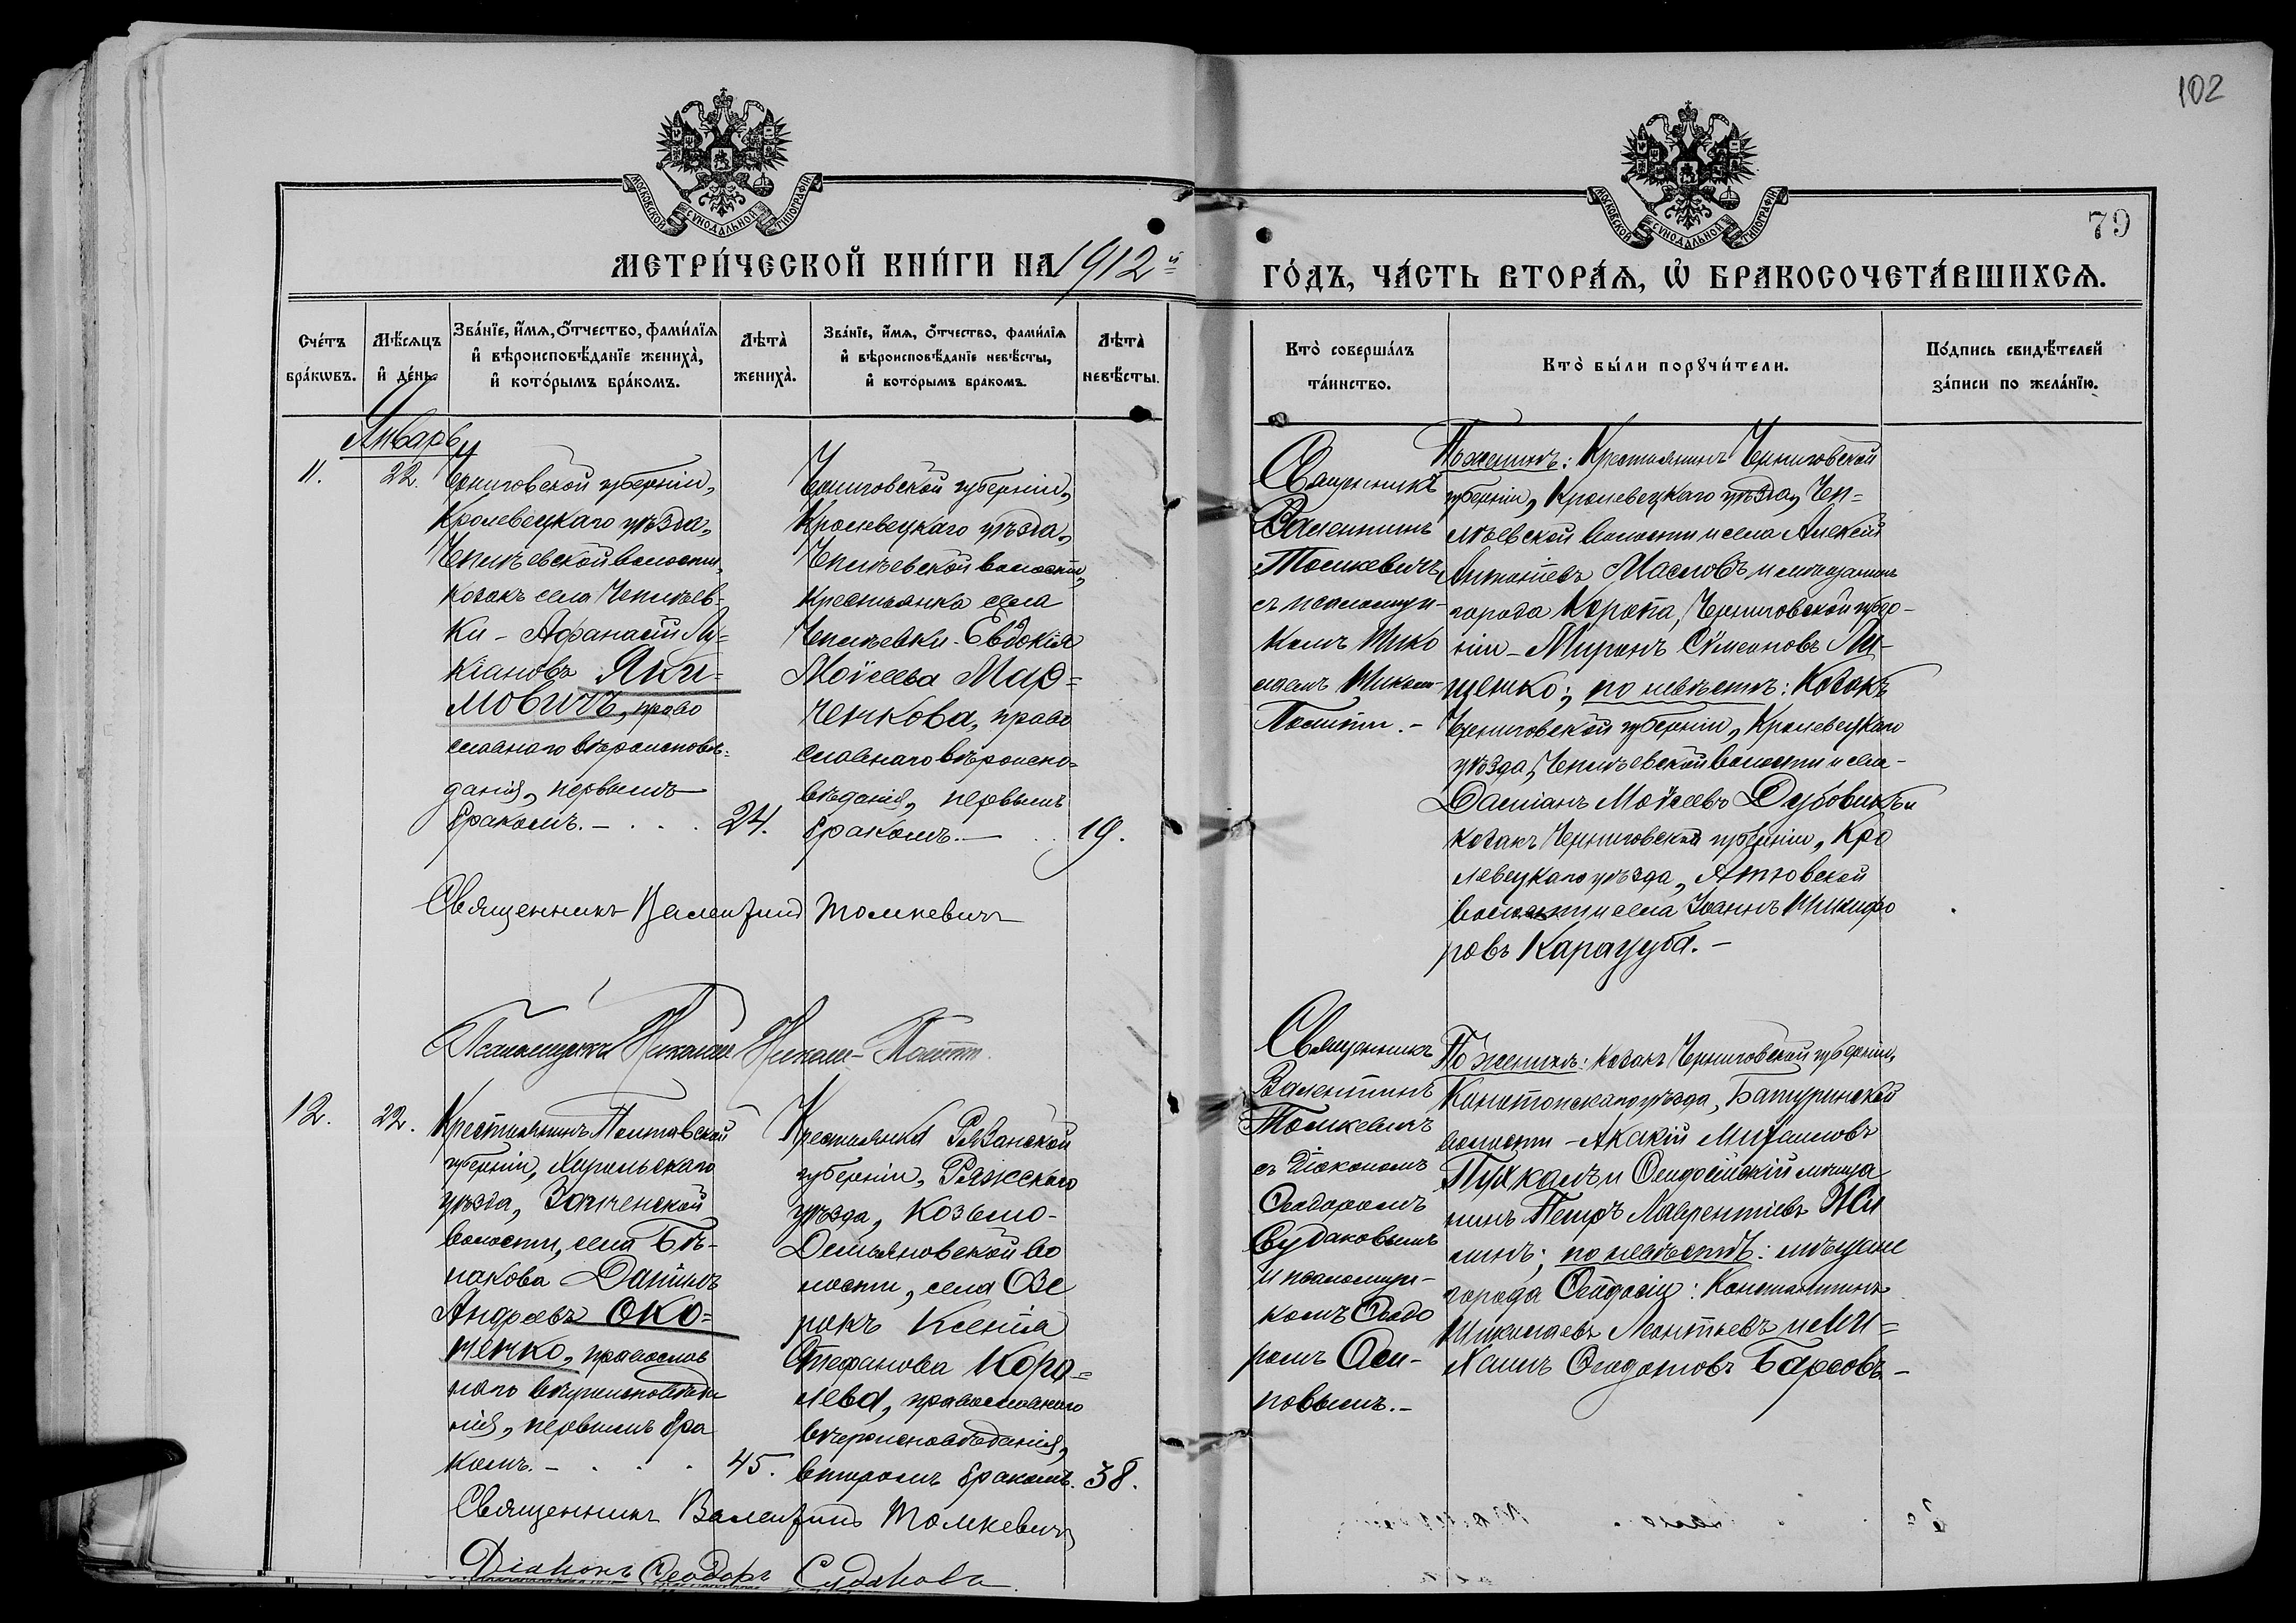 102
МОСКОВСКОЙ СѴНОДАЛЬНОЙ ТИПОГРАФІИ
МОСКОВСКОЙ СѴНОДАЛЬНОЙ ТИПОГРАФІИ
79
МЕТРИ́ЧЕСКОЙ КНИ́ГИ НА 1912й
ГО́ДЪ, ЧА́СТЬ ВТОРА́Ѧ, Ѡ҆ БРАКОСОЧЕТА́ВШИХСѦ.
Сче́тъ
бра́кѡвъ.
Мѣ́сяцъ
и҆ де́нь.
Зва́нїе, и҆́мѧ, ѻ҆́тчество, фами́лїѧ
и҆ вѣроисповѣ́данїе жениха̀,
и҆ кото́рымъ бра́комъ.
Лѣта̀
жениха̀.
Зва́нїе, и҆́мѧ, ѻ҆́тчество, фами́лїѧ
и҆ вѣроисповѣ́данїе невѣ́сты,
и҆ кото́рымъ бракомъ.
Лѣта̀
невѣ́сты.
Кто̀ соверша́лъ
та́инство.
Кто̀ бы́ли порꙋчи́тели.
По́дпись свидѣ́телей
за́писи по жела́нїю.
Январь
11.
22.
Черниговской губерніи,
Кролевецкаго уѣзда,
Чеплѣевской волости,
козакъ села Чеплѣев-
ки - Афанасій Лу=
кіановъ Яки=
мовичъ, право
славнаго вѣроисповѣ-
данія, первымъ
бракомъ. -
24.
Черниговской губерніи,
Кролевецкаго уѣзда,
Чеплѣевской волости,
крестьянка села
Чеплѣевки - Евдокія
Моѵсеева Мар=
ченкова, право
славнаго вѣроиспо=
вѣданія, первымъ
бракомъ. -
19.
Священникъ
Валентинъ
Томкевичъ
съ псаломщи-
комъ Нико
лаемъ
По женихѣ: Крестьянинъ Черниговской
губерніи, Кролевецкаго уѣзда, Чеп=
лѣевской волости и села Алексій
Масловъ и мѣщанинъ
города Коропа, Черниговской губер-
ніи - Миронъ Сѵмеоновъ Ли-
щенко; по невѣстѣ: Козакъ
Черниговской губерніи, Кролевецкаго
уѣзда, Чеплѣевской волости и села -
Даміанъ Моѵсеевъ Дубовикъ и
козакъ Черниговской губерніи, Кро
левецкаго уѣзда, Атюшской
волости и села Іоаннъ Никифо
ровъ Карагуба. -
Священникъ Валентинъ Томкевичъ
Псаломщикъ Николай
12.
22.
Крестьянинъ Полтавской
губерніи, Хорольскаго
уѣзда,
волости, села Бѣ-
лакова Даніилъ
Андреевъ Око=
ненко, православ
наго вѣроисповѣда
нія, первымъ бра
комъ. -
45.
Крестьянка Рязанской
губерніи, Ряжскаго
уѣзда, Козьмо-
Демьяновской во
лости, села Озе
рокъ Ксенія
Стефанова Коро=
лева, православнаго
вѣроисповѣданія,
вторымъ бракомъ.
38.
Священникъ
Валентинъ
Томкевичъ
съ діакономъ
Ѳеодоромъ
Судаковымъ
и псаломщи-
комъ Ѳеодо
ромъ Оси-
повымъ. -
По женихѣ: козакъ Черниговской губерніи,
Конотопскаго уѣзда, Батуринской
волости - Акакій Михаиловъ
и Ѳеодосійскій мѣща
нинъ Петръ Лаврентіевъ
; по невѣстѣ: мѣщане
города Ѳеодосіи: Константинъ
Николаевъ Леонтьевъ и Ми=
хаилъ Ѳеодотовъ Барсовъ -
Священникъ Валентинъ Томкевичъ
Діаконъ Ѳеодоръ Судаковъ